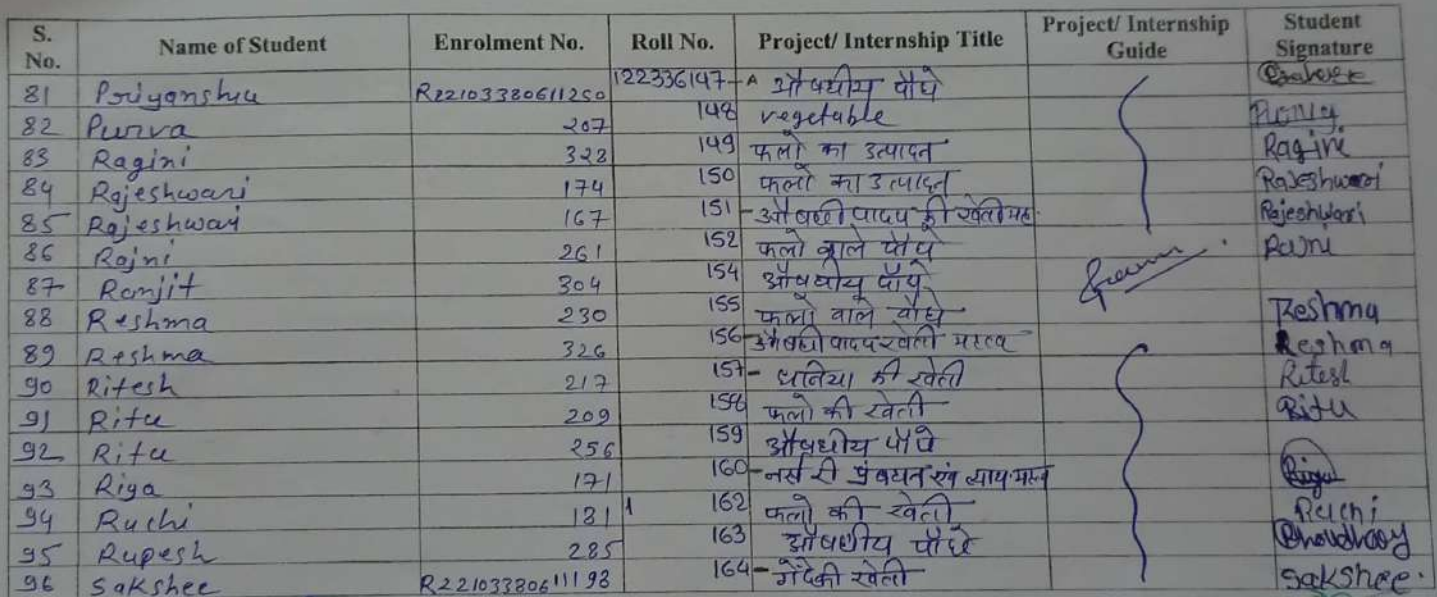 S. No. Name of Student Enrolment No. Roll No. Project/ Internship Title Project/ Internship Guide Student Signature
81 Priyanshu R22103380611250 122336147-A औषधीय पौधे
82 Purva 207 148 vegetable
83 Ragini 323 149 फलो का उत्पादन Ragini
84 Rajeshwari 174 150 फलो का उत्पादन Rajeshwari
85 Rajeshwari 167 151 - औषधी पादप की खेती मह. Rajeshwari
86 Rajni 261 152 फलो वाले पौधे Rajni
87 Ramjit 304 154 औषधीय पौधे
88 Reshma 230 155 फलो वाले पौधे Reshma
89 Reshma 326 156- औषधी पादप खेती महत्व Reshma
90 Ritesh 217 157- धनिया की खेती Ritesh
91 Ritu 209 158 फलो की खेती Ritu
92 Ritu 256 159 औषधीय पौधे
93 Riya 171 160- नर्सरी प्रबंधन एवं Riya
94 Ruchi 181 162 फलो की खेती Ruchi
95 Rupesh 285 163 औषधीय पौधे
96 Sakshee R22103380611193 164- गेंदे की खेती Sakshee.